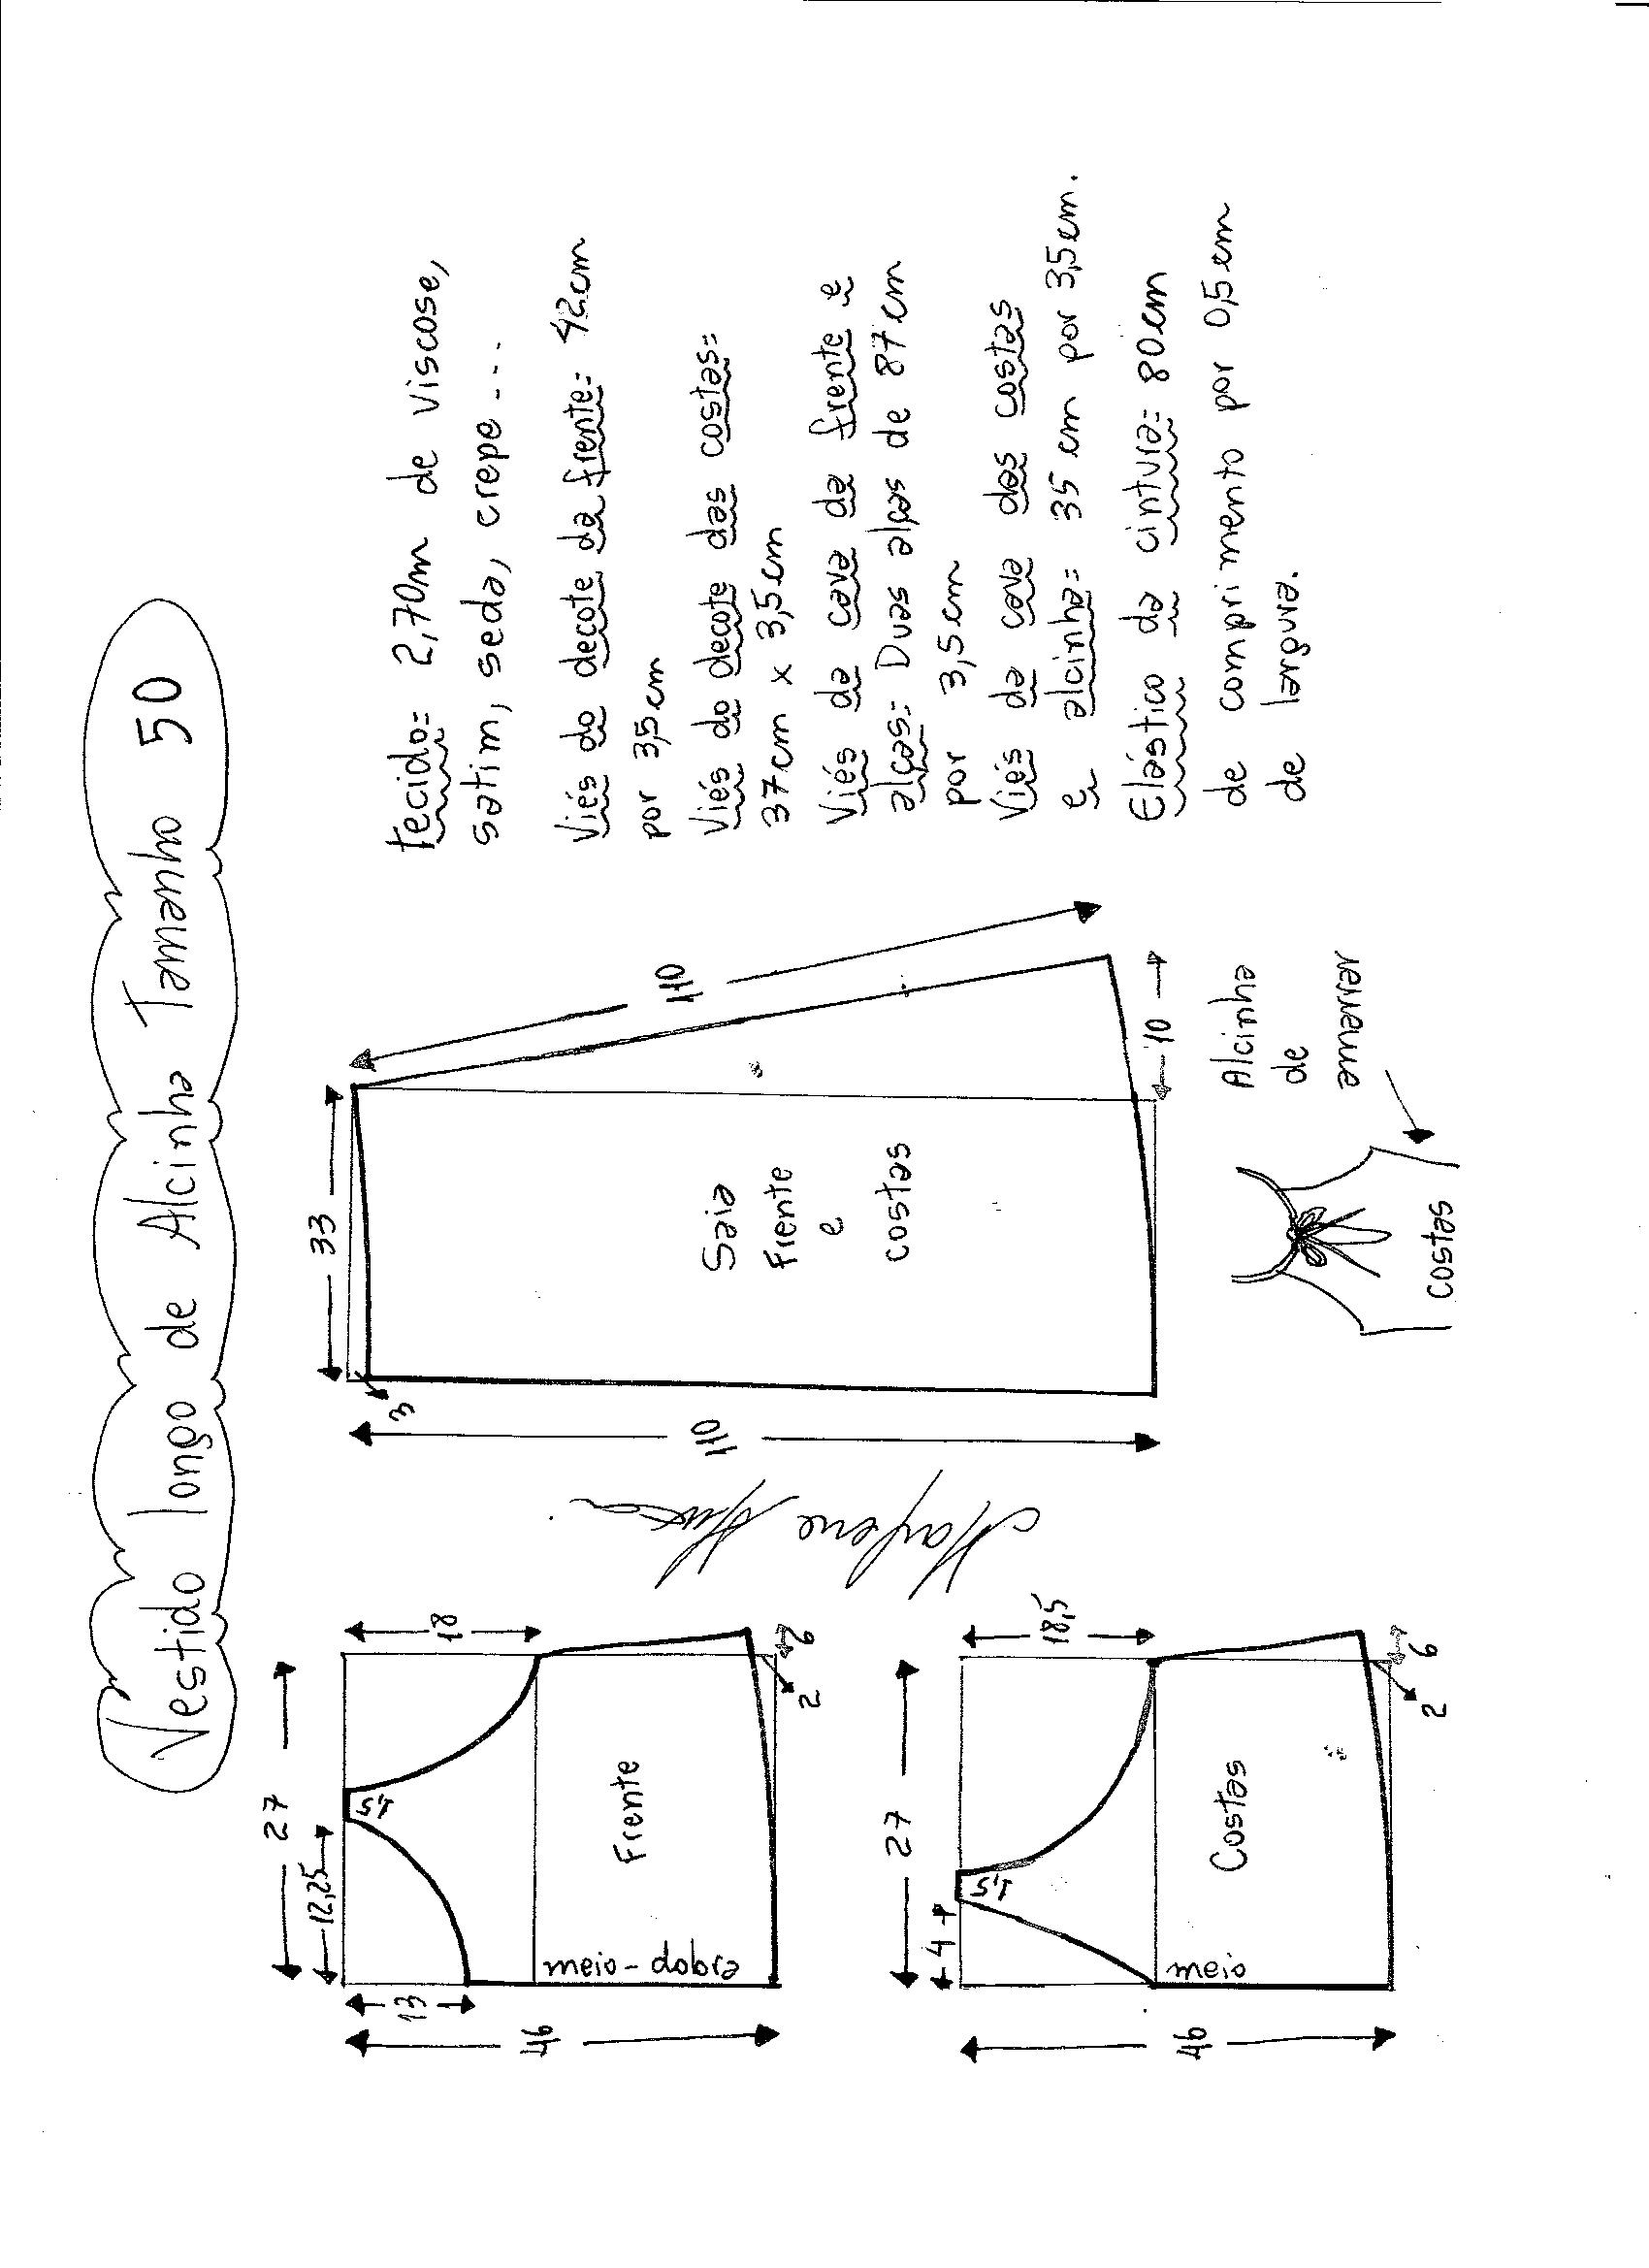 Vestido longo de Alcinha Tamanho 50
27
12,25
1,5
18
13
46
Frente
meio-dobra
2
6
27
4
1,5
18,5
46
Costas
meio
2
6
33
3
110
110
Saia
Frente
e
costas
10
Alcinha
de
amarrar
costas
tecido= 2,70m de viscose,
satim, seda, crepe...
Viés do decote da frente= 42cm
por 3,5cm
Viés do decote das costas=
37cm x 3,5cm
Viés da cava da frente e
alças= Duas alças de 87cm
por 3,5cm
Viés da cava das costas
e alcinha= 35 cm por 3,5cm.
Elástico da cintura= 80cm
de comprimento por 0,5cm
de largura.